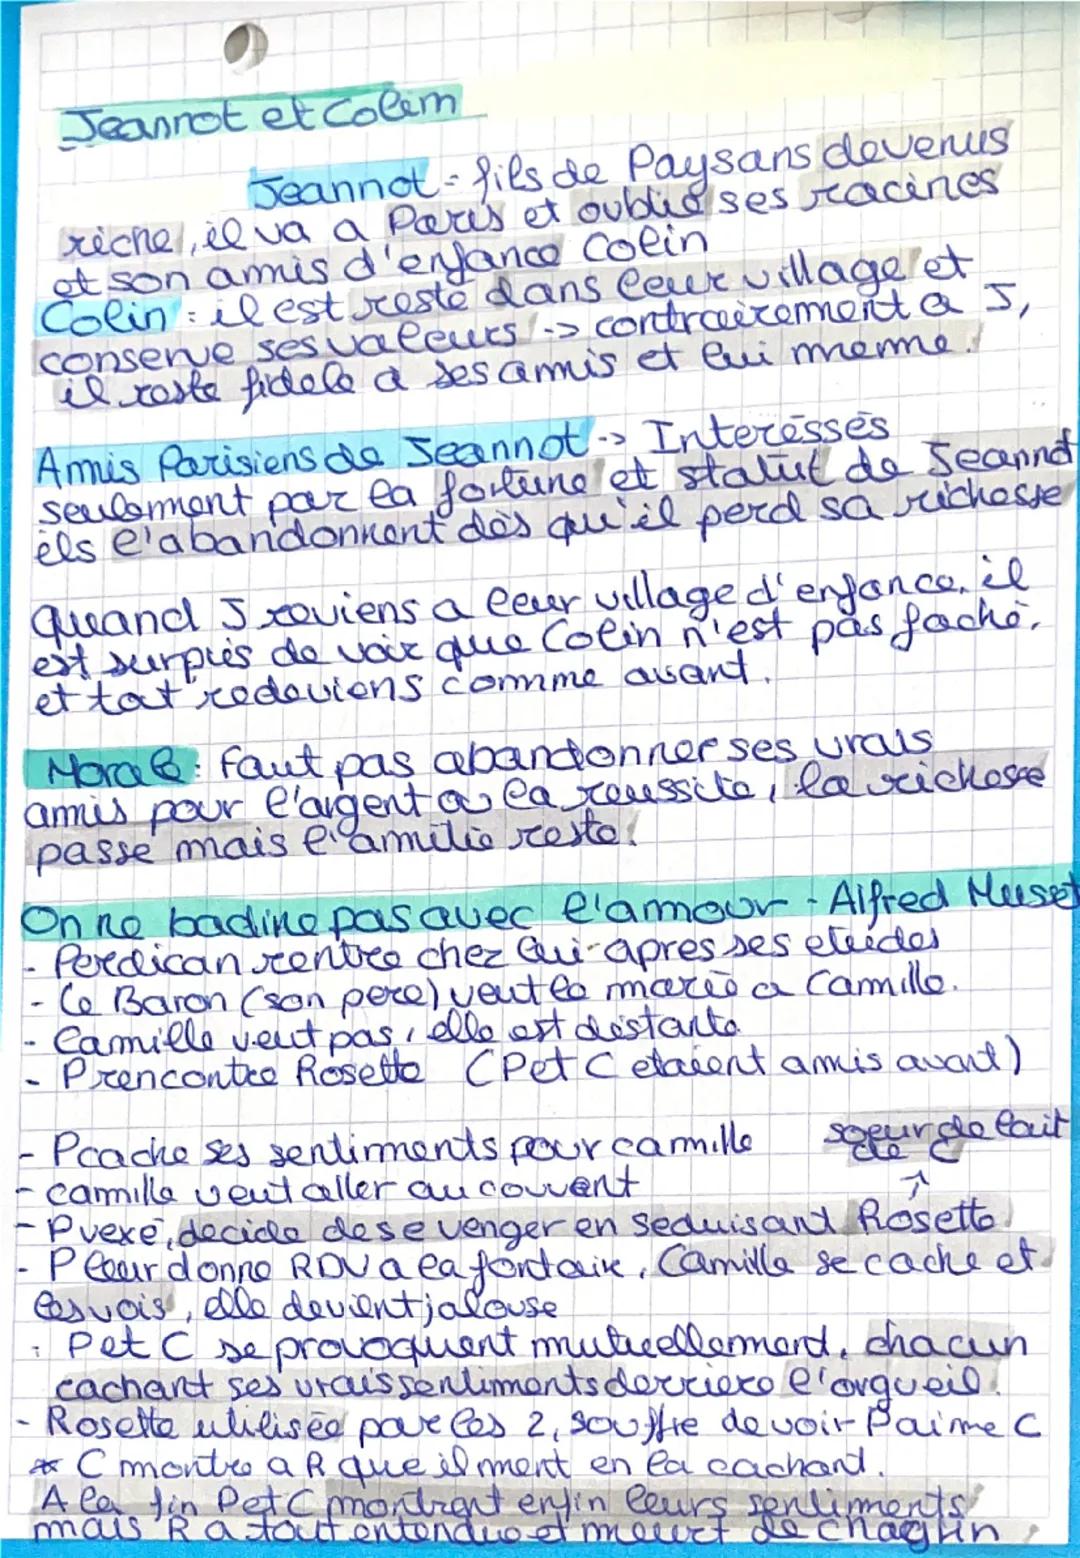 Jeannot et Colin
Jeannot = fils de Paysans devenus
riche, il va a Paris et oublie ses racines
et son amis d'enfance Colin
Colin : il est resté dans leur village et
conserve ses valeurs -> contrairement a J,
il reste fidele a ses amis et lui meme.
Amis Parisiens de Jeannot -> Interéssés
seulement par la fortune et statut de Jeannot
ils l'abandonnent dès qu'il perd sa richesse
quand J reviens a leur village d'enfance, il
est surpris de voir que Colin n'est pas faché,
et tout redeviens comme avant.
Morale : faut pas abandonner ses vrais
amis pour l'argent ou la reussite, la richesse
passe mais l'amitié reste.
On ne badine pas avec l'amour - Alfred Musset
- Perdican rentre chez lui apres ses etudes
- Le Baron (son pere) veut le marié a Camille.
- Camille veut pas, elle est distante
- P rencontre Rosette (P et C etaient amis avant)
- P cache ses sentiments pour camille
soeur de lait
de C
- camille veut aller au couvent
- P vexé, decide de se venger en seduisant Rosette
- P leur donne RDV a la fontaine, Camille se cache et
les vois, elle devient jalouse
- P et C se provoquent mutuellement, chacun
cachant ses vrais sentiments derriere l'orgueil.
- Rosette utilisée par les 2, souffre de voir P aime C
* C montre a R que il ment en la cachant.
A la fin P et C montrent enfin leurs sentiments
mais R a tout entendue et meurt de chagrin